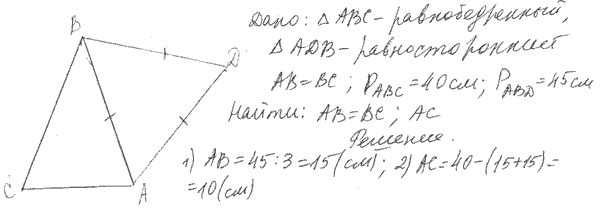 Дано: △ABC - равнобедренный,
△ADB - равносторонний
AB=BC; P_ABC=40см; P_ABD=45см
Найти: AB=BC; AC
Решение.
1) AB=45:3=15(см); 2) AC=40-(15+15)=
=10(см)
B
D
C
A